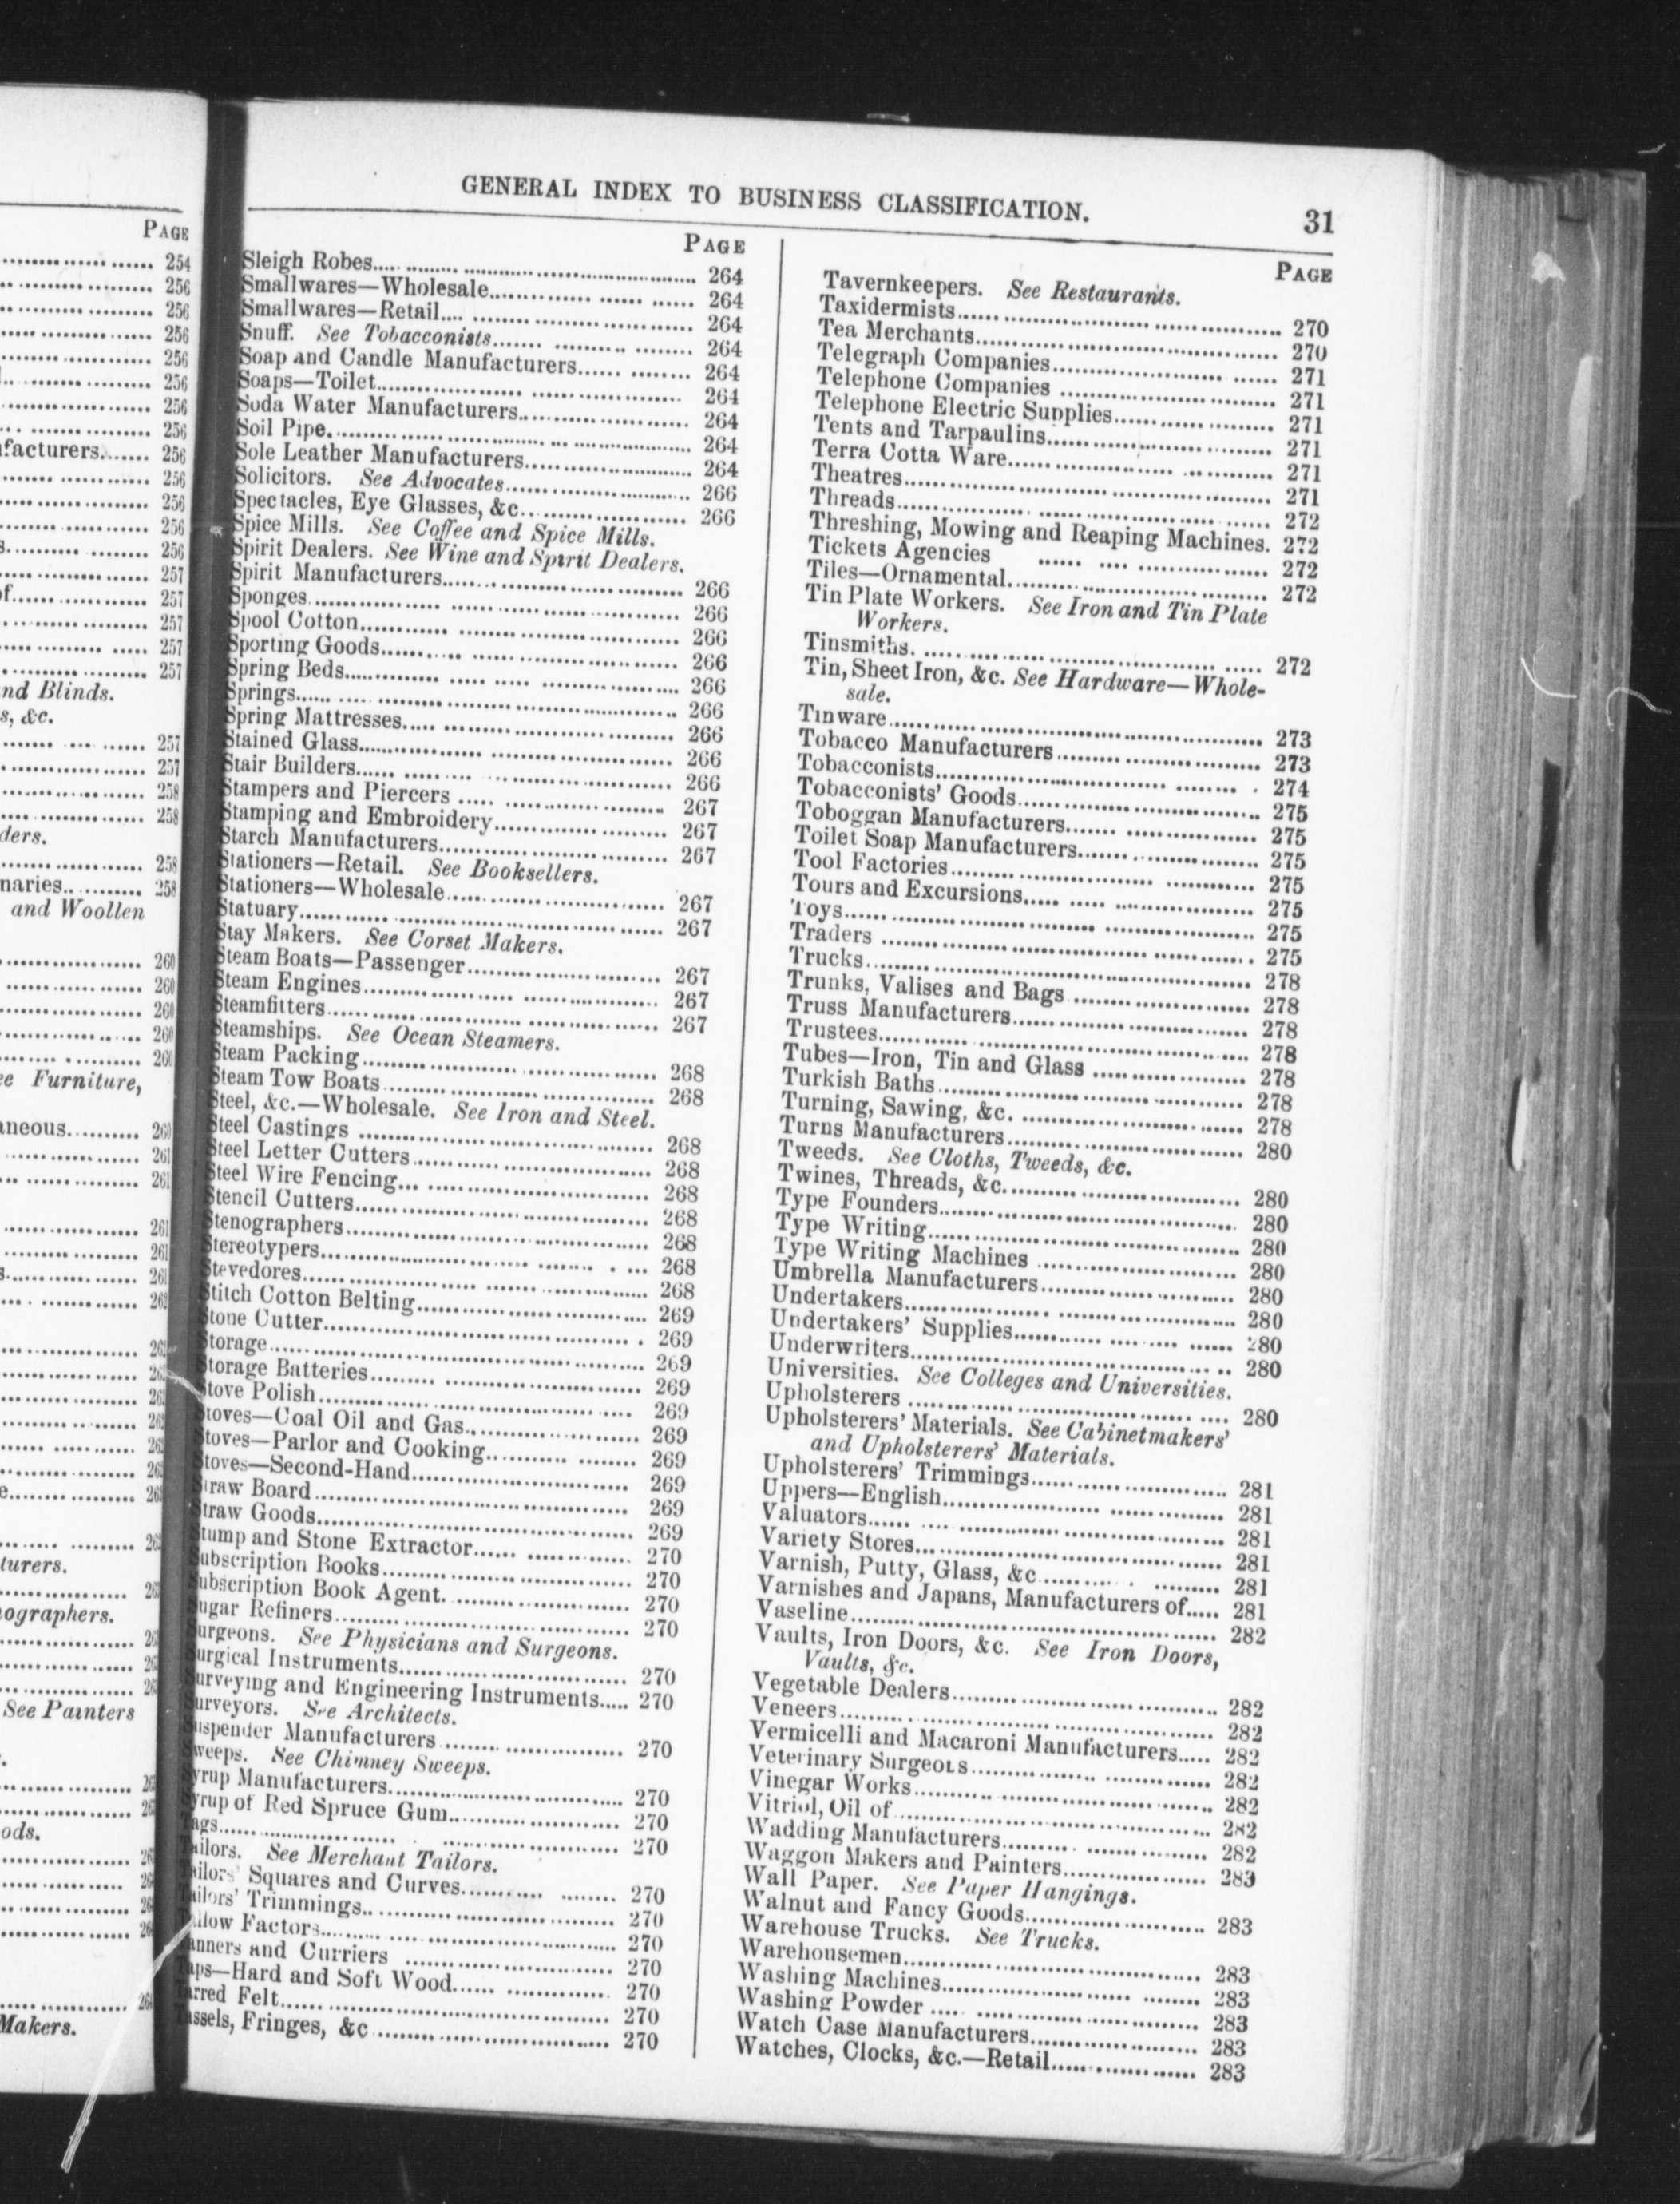 PAGE
254
256
256
256
256
256
256
256
facturers....... 256
256
256
256
256
257
257
257
257
257
nd Blinds.
s, &c.
257
257
258
258
ders.
258
naries............ 258
and Woollen
260
260
260
260
260
ee Furniture,
aneous.......... 260
261
261
261
261
261
turers.
ographers.
See Painters
ods.
Makers.
GENERAL INDEX TO BUSINESS CLASSIFICATION. 31
PAGE
Sleigh Robes........ 264
Smallwares—Wholesale........ 264
Smallwares—Retail........ 264
Snuff. See Tobacconists........ 264
Soap and Candle Manufacturers........ 264
Soaps—Toilet........ 264
Soda Water Manufacturers........ 264
Soil Pipe........ 264
Sole Leather Manufacturers........ 264
Solicitors. See Advocates........ 266
Spectacles, Eye Glasses, &c........ 266
Spice Mills. See Coffee and Spice Mills.
Spirit Dealers. See Wine and Spirit Dealers.
Spirit Manufacturers........ 266
Sponges........ 266
Spool Cotton........ 266
Sporting Goods........ 266
Spring Beds........ 266
Springs........ 266
Spring Mattresses........ 266
Stained Glass........ 266
Stair Builders........ 266
Stampers and Piercers........ 267
Stamping and Embroidery........ 267
Starch Manufacturers........ 267
Stationers—Retail. See Booksellers.
Stationers—Wholesale........ 267
Statuary........ 267
Stay Makers. See Corset Makers.
Steam Boats—Passenger........ 267
Steam Engines........ 267
Steamfitters........ 267
Steamships. See Ocean Steamers.
Steam Packing........ 268
Steam Tow Boats........ 268
Steel, &c.—Wholesale. See Iron and Steel.
Steel Castings........ 268
Steel Letter Cutters........ 268
Steel Wire Fencing........ 268
Stencil Cutters........ 268
Stenographers........ 268
Stereotypers........ 268
Stevedores........ 268
Stitch Cotton Belting........ 269
Stone Cutter........ 269
Storage........ 269
Storage Batteries........ 269
Stove Polish........ 269
Stoves—Coal Oil and Gas........ 269
Stoves—Parlor and Cooking........ 269
Stoves—Second-Hand........ 269
Straw Board........ 269
Straw Goods........ 269
Stump and Stone Extractor........ 270
Subscription Books........ 270
Subscription Book Agent........ 270
Sugar Refiners........ 270
Surgeons. See Physicians and Surgeons.
Surgical Instruments........ 270
Surveying and Engineering Instruments..... 270
Surveyors. See Architects.
Suspender Manufacturers........ 270
Sweeps. See Chimney Sweeps.
Syrup Manufacturers........ 270
Syrup of Red Spruce Gum........ 270
Tags........ 270
Tailors. See Merchant Tailors.
Tailors' Squares and Curves........ 270
Tailors' Trimmings........ 270
Tallow Factors........ 270
Tanners and Curriers........ 270
Taps—Hard and Soft Wood........ 270
Tarred Felt........ 270
Tassels, Fringes, &c........ 270
PAGE
Tavernkeepers. See Restaurants.
Taxidermists........ 270
Tea Merchants........ 270
Telegraph Companies........ 271
Telephone Companies........ 271
Telephone Electric Supplies........ 271
Tents and Tarpaulins........ 271
Terra Cotta Ware........ 271
Theatres........ 271
Threads........ 272
Threshing, Mowing and Reaping Machines. 272
Tickets Agencies........ 272
Tiles—Ornamental........ 272
Tin Plate Workers. See Iron and Tin Plate
Workers.
Tinsmiths........ 272
Tin, Sheet Iron, &c. See Hardware—Whole-
sale.
Tinware........ 273
Tobacco Manufacturers........ 273
Tobacconists........ 274
Tobacconists' Goods........ 275
Toboggan Manufacturers........ 275
Toilet Soap Manufacturers........ 275
Tool Factories........ 275
Tours and Excursions........ 275
Toys........ 275
Traders........ 275
Trucks........ 278
Trunks, Valises and Bags........ 278
Truss Manufacturers........ 278
Trustees........ 278
Tubes—Iron, Tin and Glass........ 278
Turkish Baths........ 278
Turning, Sawing, &c........ 278
Turns Manufacturers........ 280
Tweeds. See Cloths, Tweeds, &c.
Twines, Threads, &c........ 280
Type Founders........ 280
Type Writing........ 280
Type Writing Machines........ 280
Umbrella Manufacturers........ 280
Undertakers........ 280
Undertakers' Supplies........ 280
Underwriters........ 280
Universities. See Colleges and Universities.
Upholsterers........ 280
Upholsterers' Materials. See Cabinetmakers'
and Upholsterers' Materials.
Upholsterers' Trimmings........ 281
Uppers—English........ 281
Valuators........ 281
Variety Stores........ 281
Varnish, Putty, Glass, &c........ 281
Varnishes and Japans, Manufacturers of..... 281
Vaseline........ 282
Vaults, Iron Doors, &c. See Iron Doors,
Vaults, &c.
Vegetable Dealers........ 282
Veneers........ 282
Vermicelli and Macaroni Manufacturers..... 282
Veterinary Surgeons........ 282
Vinegar Works........ 282
Vitriol, Oil of........ 282
Wadding Manufacturers........ 282
Waggon Makers and Painters........ 283
Wall Paper. See Paper Hangings.
Walnut and Fancy Goods........ 283
Warehouse Trucks. See Trucks.
Warehousemen........ 283
Washing Machines........ 283
Washing Powder........ 283
Watch Case Manufacturers........ 283
Watches, Clocks, &c.—Retail........ 283